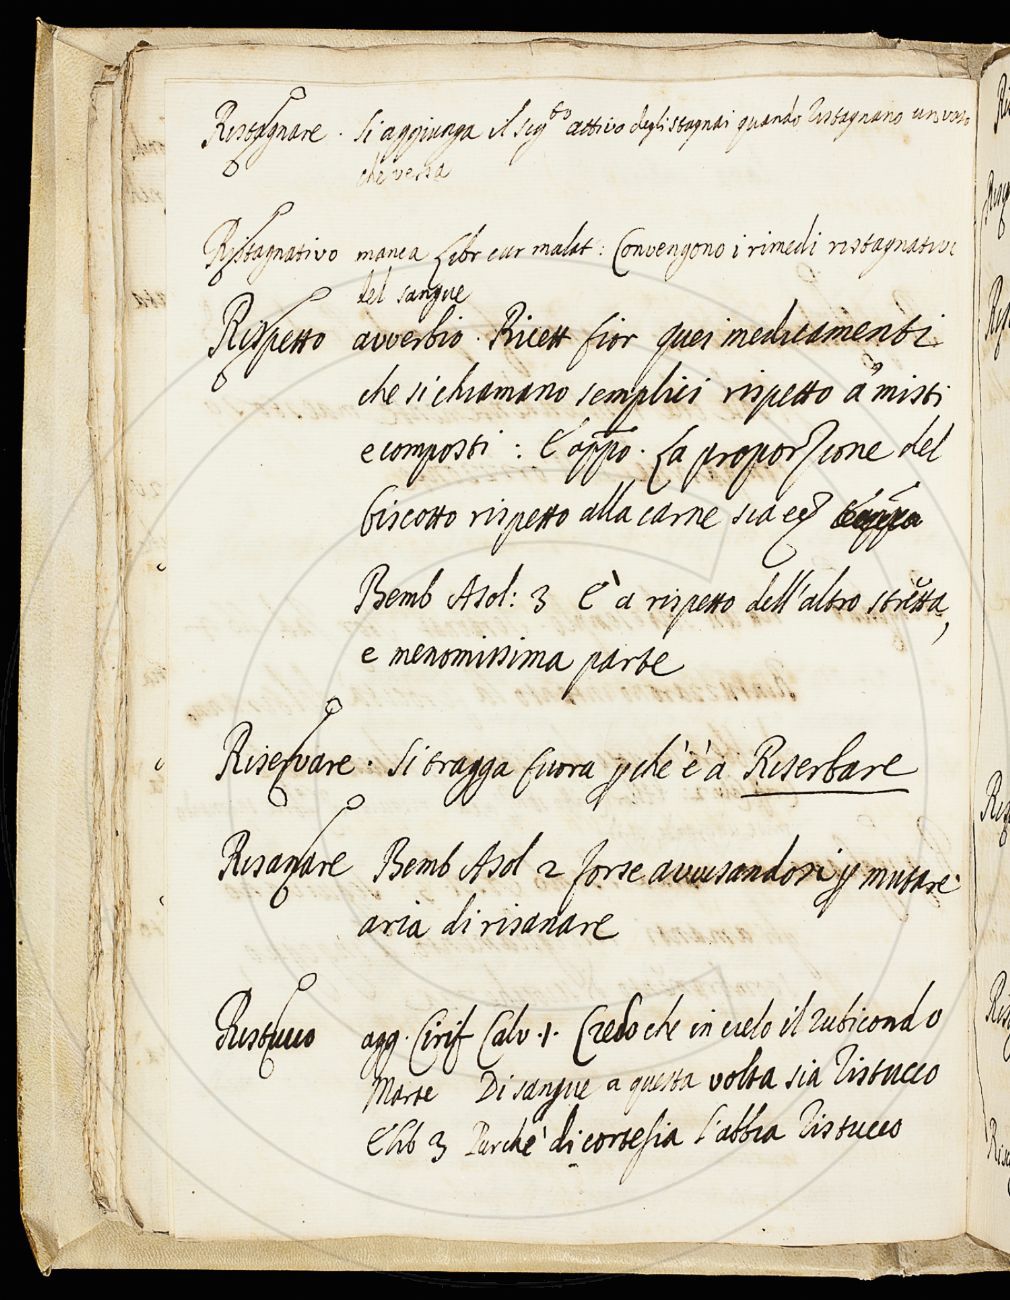 Ristagnare . Si aggiunga il sig.to attivo degli stagnai quando ristagnano un vaso
che versa
Ristagnativo manca Libr cur malat : Convengono i rimedi ristagnativi
del sangue
Rispetto avverbio . Ricett fior quei medicamenti
che si chiamano semplici rispetto a misti
e composti : E appo . La proporzione del
biscotto rispetto alla carne sia
Bemb Asol : 3 E' a rispetto dell'altro stretta,
e menomissima parte
Riservare . Si tragga fuora che è a Riserbare
Risanare Bemb Asol 2 forse avvisandosi mutare
aria di risanare
Ristucco agg . Cirif Calv . 1 . Credo che in cielo il rubicondo
Marte Di sangue a questa volta sia ristucco
E lib 3 Purche di cortesia l'abbia ristucco